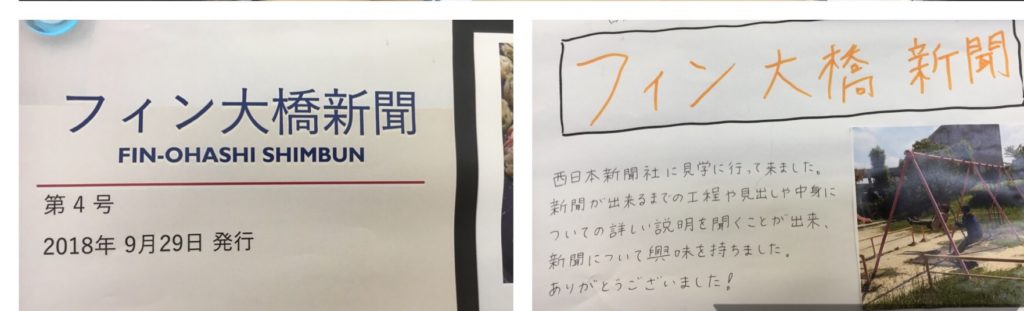 フィン大橋新聞
FIN-OHASHI SHIMBUN
第4号
2018年 9月29日 発行
フィン大橋 新聞
西日本新聞社に見学に行って来ました。
新聞が出来るまでの工程や見出しや中身に
ついての詳しい説明を聞くことが出来、
新聞について興味を持ちました。
ありがとうございました!